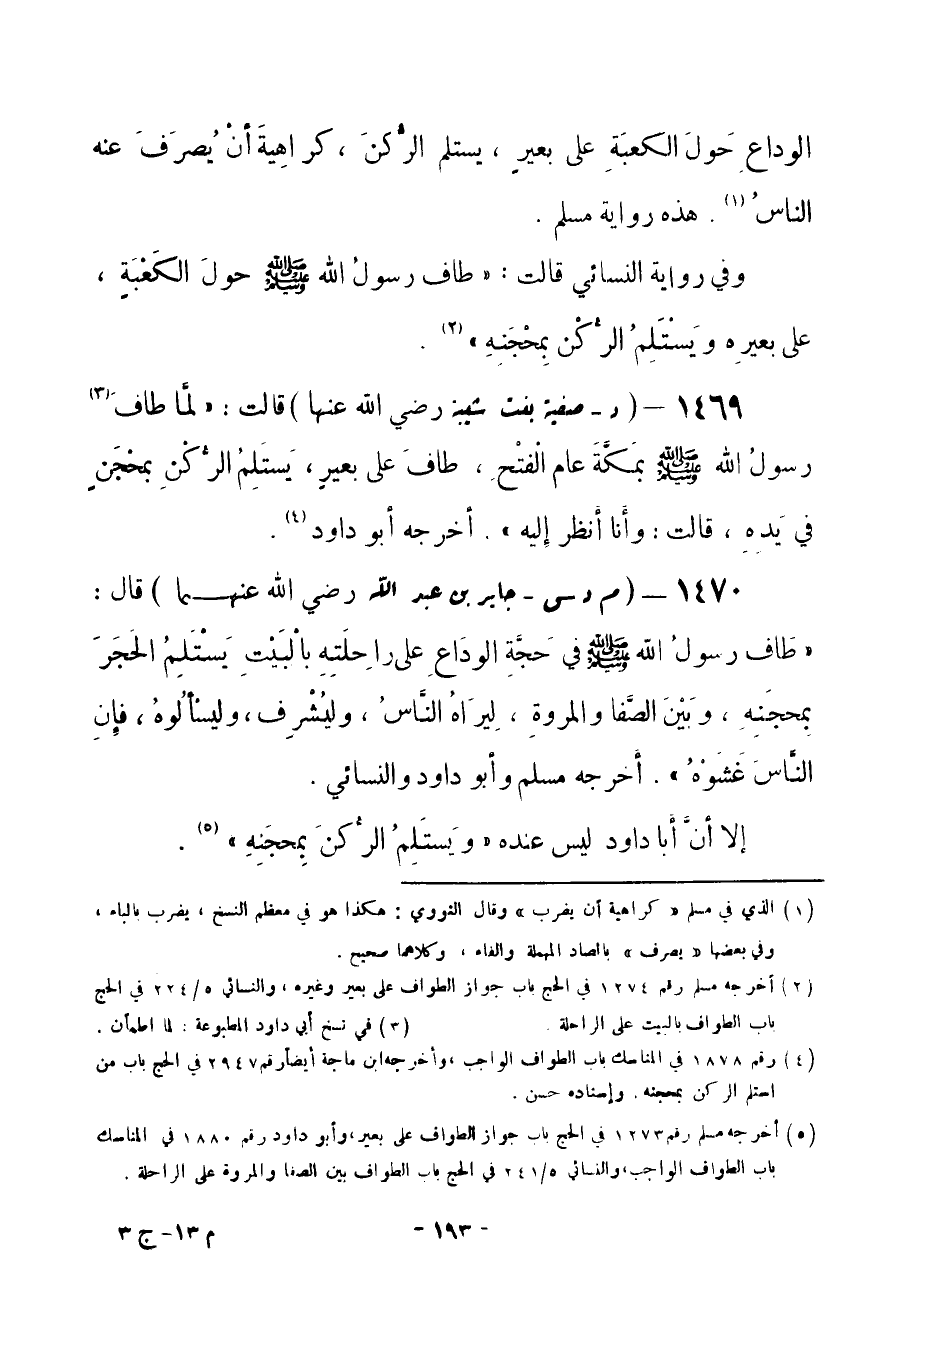 الوداعِ حَولَ الكعبَةِ على بعيرٍ ، يستلم الرُّكنَ ، كراهِيةَ أنْ يُصرَفَ عنه
الناسُ (١) . هذه رواية مسلم .
وفي رواية النسائي قالت : « طاف رسولُ الله ﷺ حولَ الكَعْبَةِ ،
على بعيرِه ويَسْتَلِمُ الرُّكْنَ بِمِحْجَنِهِ » (٢) .
١٤٦٩ – ( د - صفية بنت شيبة رضي الله عنها ) قالت : « لمَّا طافَ (٣)
رسولُ الله ﷺ بِمَكَّةَ عام الْفتْحِ ، طافَ على بعيرٍ ، يَستَلِمُ الرُّكْنَ بمِحْجَنٍ
في يَدِهِ ، قالت : وأنا أنظر إليه » . أخرجه أبو داود (٤) .
١٤٧٠ – ( م د س - جابر بن عبد الله رضي الله عنهما ) قال :
« طَاف رسولُ الله ﷺ في حَجَّةِ الودَاعِ على راحِلَتِهِ بالْبَيْتِ يَسْتَلِمُ الحَجَرَ
بمحجَنِهِ ، وبَيْنَ الصَّفا والمروةِ ، لِيرَاهُ النَّاسُ ، وليُشْرِف ، وليسْألُوهُ ، فإِنِ
النَّاسَ غَشَوْهُ » . أخرجه مسلم وأبو داود والنسائي .
إلا أنَّ أبا داود ليس عنده « ويَستَلِمُ الرُّكنَ بِمحجَنِهِ » (٥) .
(١) الذي في مسلم « كراهية أن يضرب » وقال النووي : هكذا هو في معظم النسخ ، يضرب بالباء ،
وفي بعضها « يصرف » بالصاد المهملة والفاء ، وكلاهما صحيح .
(٢) أخرجه مسلم رقم ١٢٧٤ في الحج باب جواز الطواف على بعير وغيره ، والنسائي ٢٢٤/٥ في الحج
باب الطواف بالبيت على الراحلة . (٣) في نسخ أبي داود المطبوعة : لما اطمأن .
(٤) رقم ١٨٧٨ في المناسك باب الطواف الواجب ، وأخرجه ابن ماجة أيضاً رقم ٢٩٤٧ في الحج باب من
استلم الركن بمحجنه . وإسناده حسن .
(٥) أخرجه مسلم رقم ١٢٧٣ في الحج باب جواز الطواف على بعير ، وأبو داود رقم ١٨٨٠ في المناسك
باب الطواف الواجب ، والنسائي ٢٤١/٥ في الحج باب الطواف بين الصفا والمروة على الراحلة .
- ١٩٣ - م ١٣ - ج ٣